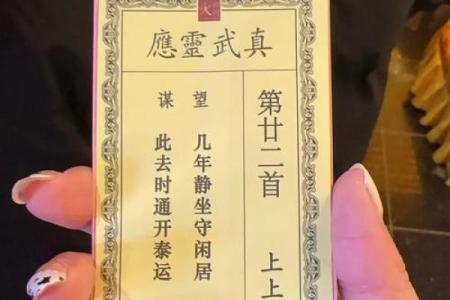 真武靈應
第廿二首 上上
望 几年静坐守闲居
谋 此去时通开泰运